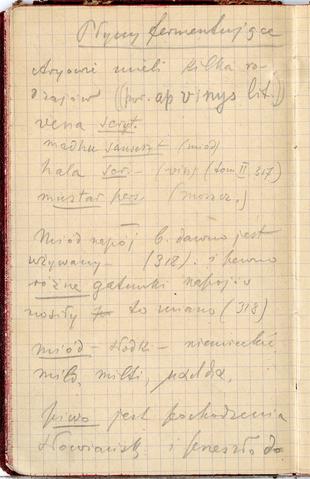 Płyny fermentujące
Aryowie mieli kilka ro-
dzajów ((por. ap vinys lit.))
vena scryt.
madhu sanscryt (miód)
hala scr. - (vin) (tom II. 317)
mustar pers. (moszcz.)
Miód napój b. dawno jest
używany (318). i pewno
różne gatunki napojów
nosiły to miano (318)
miód - słodk - niemieckie
mild, milti,
piwo jest pochodzenia
słowiańsk i przeszło do